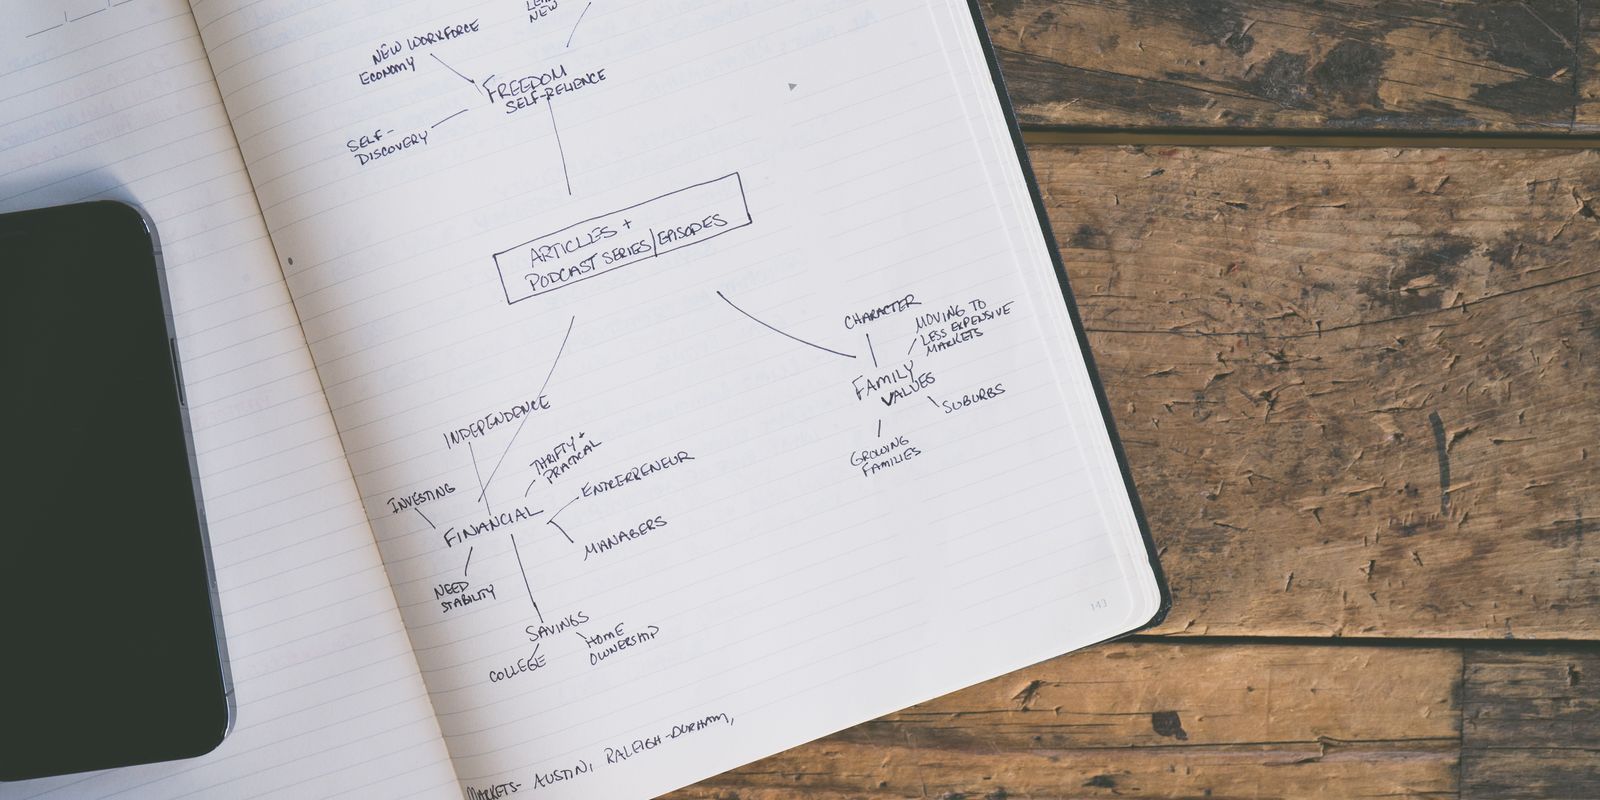 NEW
NEW WORKFORCE
ECONOMY
FREEDOM
SELF-RELIENCE
SELF-
DISCOVERY
ARTICLES +
PODCAST SERIES/EPISODES
CHARACTER
MOVING TO
LESS EXPENSIVE
MARKETS
FAMILY
VALUES
SUBURBS
GROWING
FAMILIES
INDEPENDENCE
THRIFTY +
PRACTICAL
ENTREPRENEUR
INVESTING
FINANCIAL
MANAGERS
NEED
STABILITY
SAVINGS
HOME
OWNERSHIP
COLLEGE
MARKETS- AUSTIN, RALEIGH-DURHAM,
143